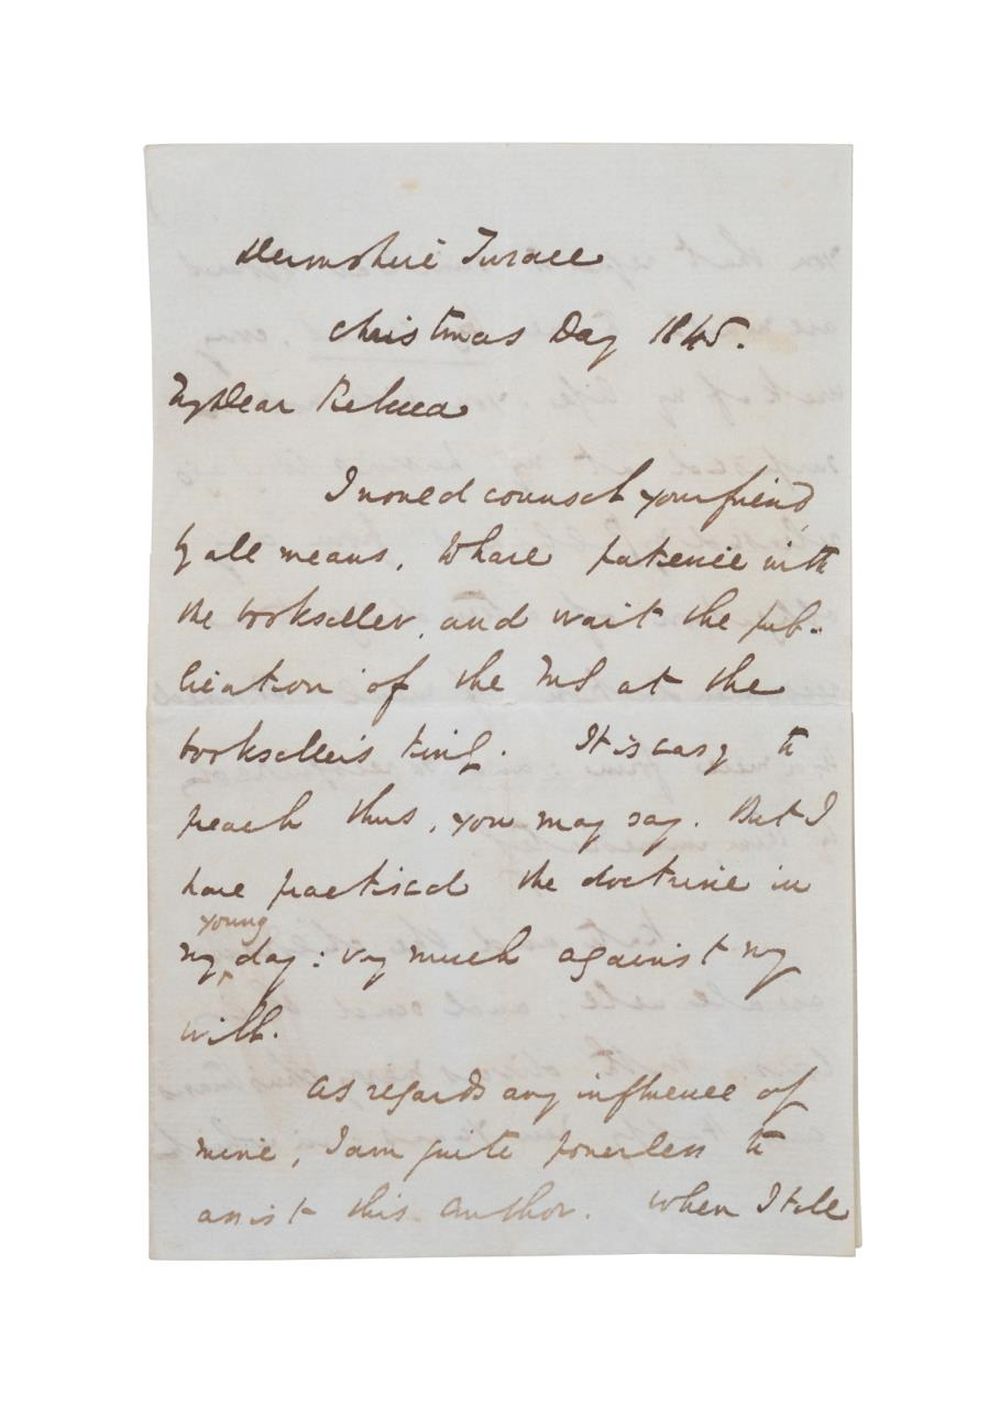 Devonshire Terrace
Christmas Day 1845.
My Dear Rebecca
I would counsel your friend,
by all means, to have patience with
the bookseller, and wait the pub-
lication of the MS at the
bookseller's time. It is easy to
preach thus, you may say. But I
have practised the doctrine in
young
my ^ day: very much against my
will.
As regards any influence of
mine, I am quite powerless to
assist this author. When I tell